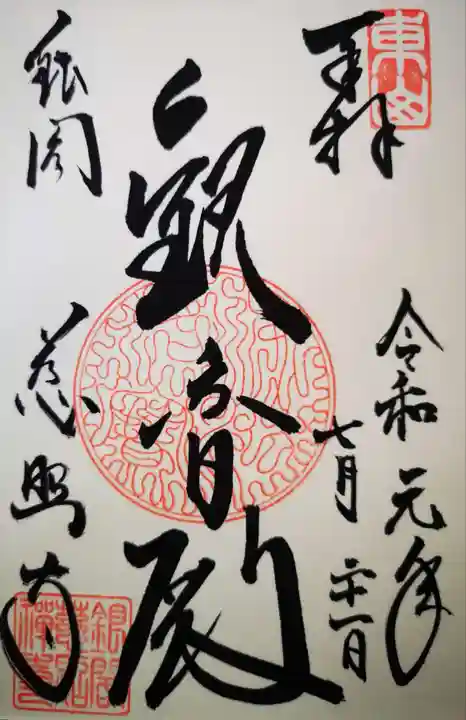 東山
奉拝
令和元年
七月二十一日
観音殿
銀閣
慈照寺